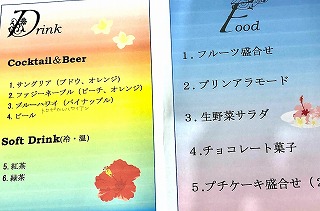 Drink
Cocktail&Beer
1. サングリア（ブドウ、オレンジ）
2. ファジーネーブル（ピーチ、オレンジ）
3. ブルーハワイ（パイナップル）
4. ビール
Soft Drink(冷・温)
5. 紅茶
6. 緑茶
Food
1. フルーツ盛合せ
2. プリンアラモード
3. 生野菜サラダ
4. チョコレート菓子
5. プチケーキ盛合せ（2